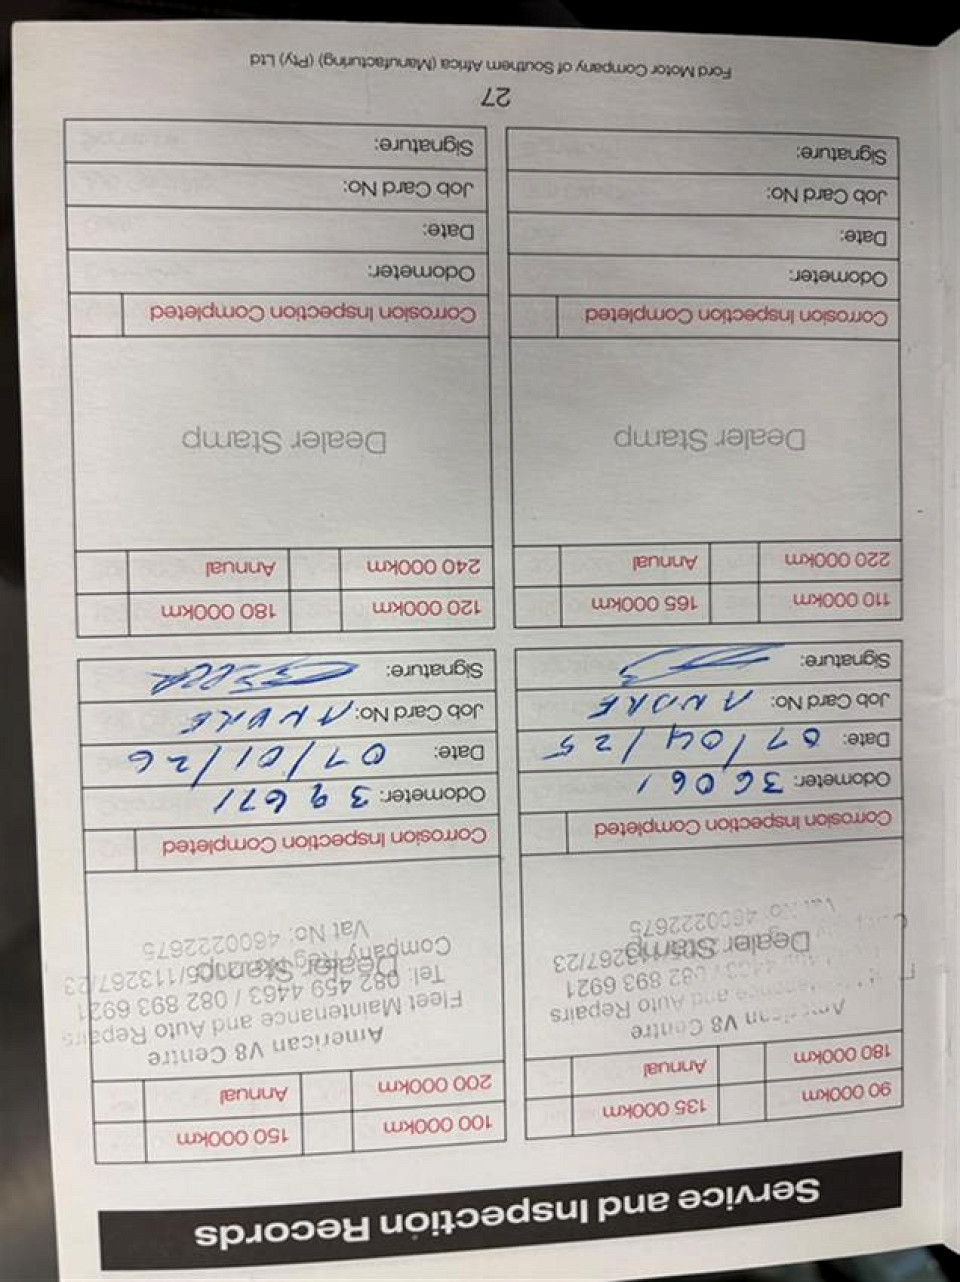 Service and Inspection Records
90 000km 135 000km
180 000km Annual
American V8 Centre
Fleet Maintenance and Auto Repairs
082 893 6921
Dealer Stamp
Vat No: 460022675
Corrosion Inspection Completed
Odometer: 36061
Date: 07/04/25
Job Card No: ANDRE
Signature:
100 000km 150 000km
200 000km Annual
American V8 Centre
Fleet Maintenance and Auto Repairs
Tel: 082 459 4463 / 082 893 6921
Dealer Stamp
Company Reg 05/113267/23
Vat No: 460022675
Corrosion Inspection Completed
Odometer: 39671
Date: 07/01/26
Job Card No: ANDRE
Signature:
110 000km 165 000km
220 000km Annual
Dealer Stamp
Corrosion Inspection Completed
Odometer:
Date:
Job Card No:
Signature:
120 000km 180 000km
240 000km Annual
Dealer Stamp
Corrosion Inspection Completed
Odometer:
Date:
Job Card No:
Signature:
27
Ford Motor Company of Southern Africa (Manufacturing) (Pty) Ltd